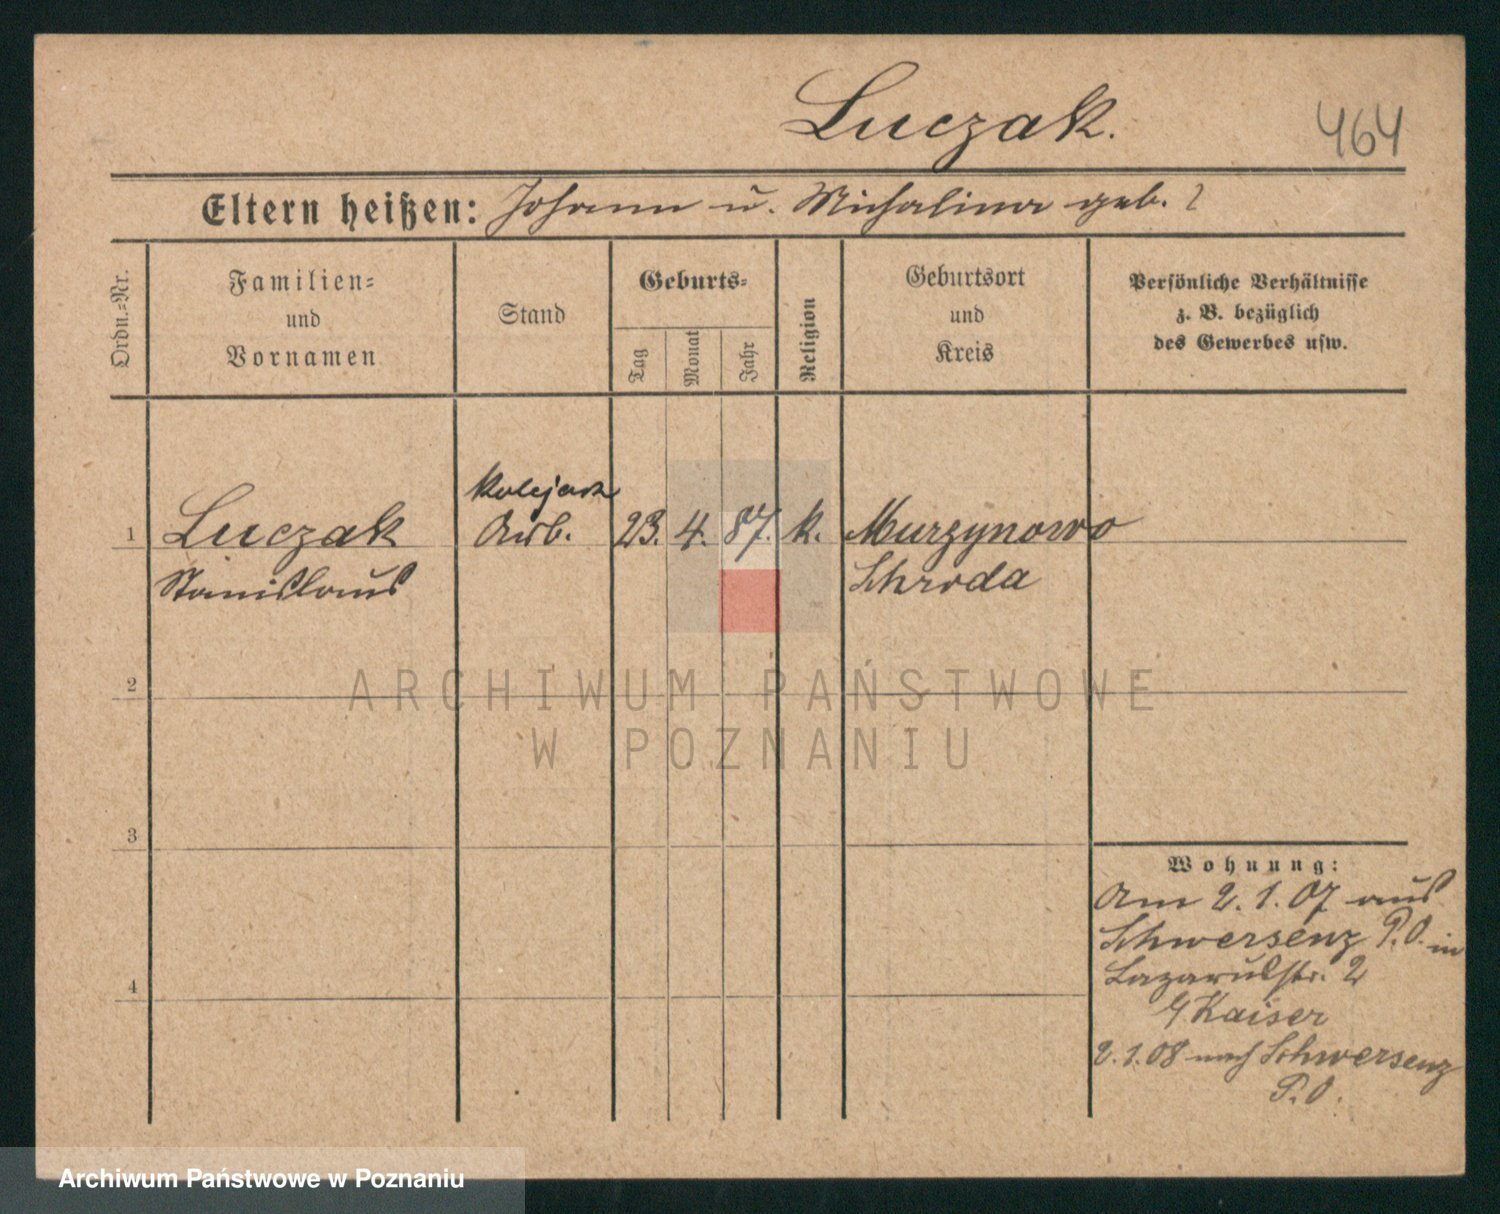 Luczak.
464
Eltern heißen: Johann u. Michalina geb. ?
Ordn.-Nr.
Familien-
und
Vornamen
Stand
Geburts-
Tag
Monat
Jahr
Religion
Geburtsort
und
Kreis
Persönliche Verhältnisse
z. B. bezüglich
des Gewerbes usw.
1
Luczak
Stanislaus
Arb.
23. 4. 87. k.
Murzynowo
Schroda
2
3
4
ARCHIWUM PAŃSTWOWE
W POZNANIU
Wohnung:
Am 2.1.07 aus
Schwersenz P.O. in
Lazarusstr. 2
Kaiser
2.1.08 nach Schwersenz
P.O.
Archiwum Państwowe w Poznaniu